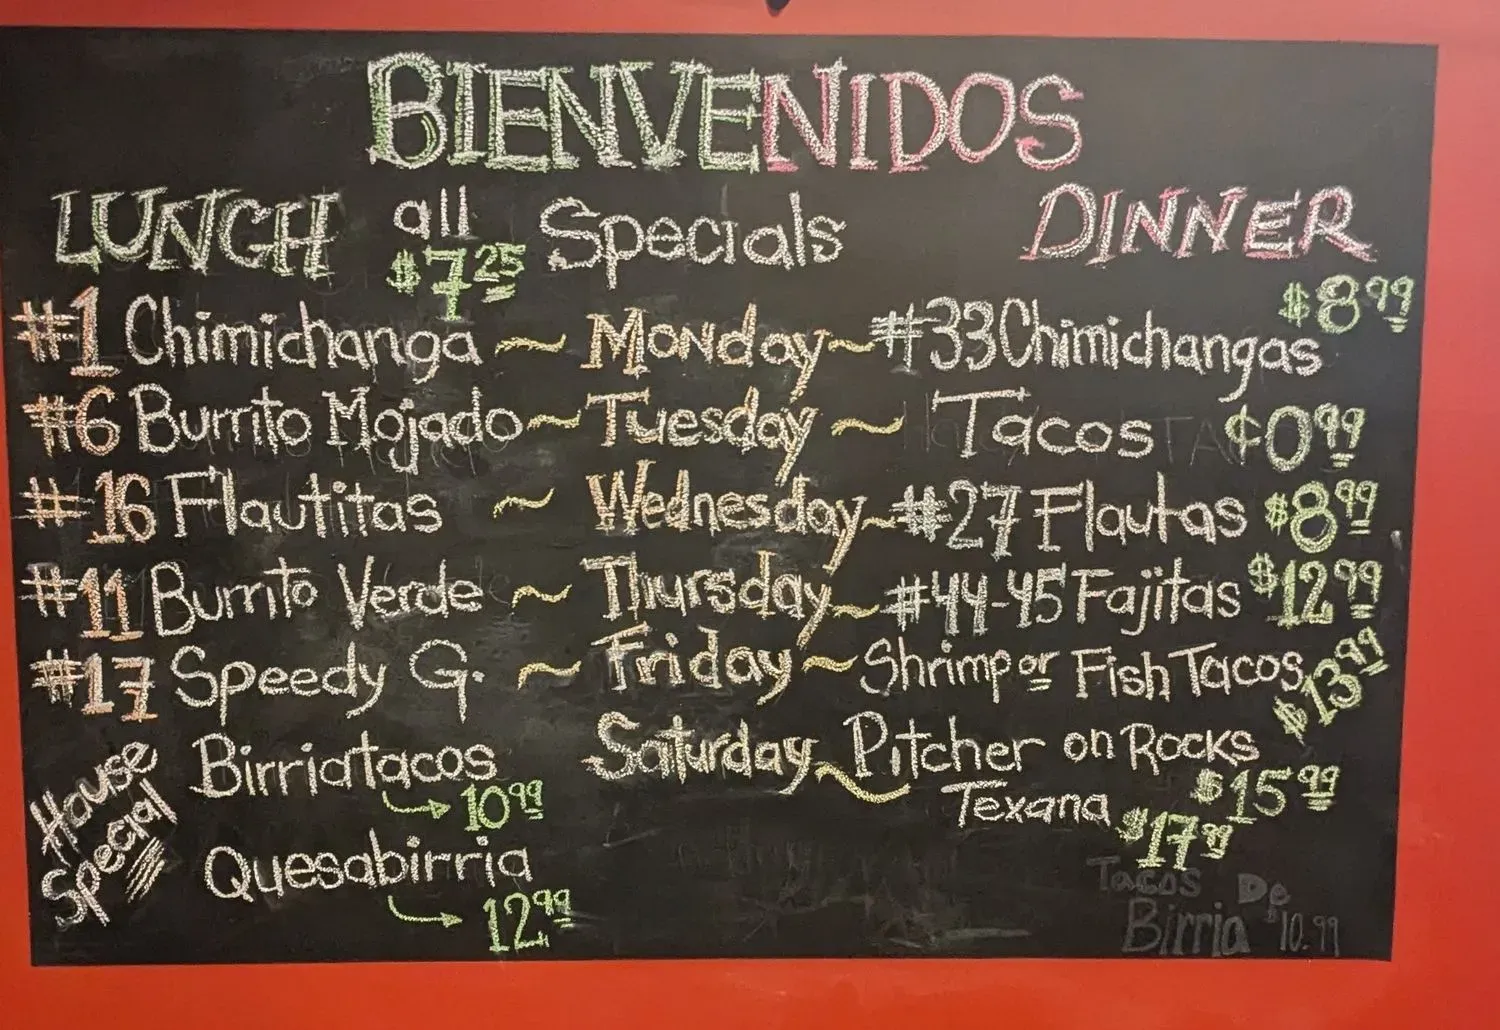 BIENVENIDOS
LUNCH all $7.25 Specials DINNER
#1 Chimichanga ~ Monday ~ #33 Chimichangas $8.99
#6 Burrito Mojado ~ Tuesday ~ Tacos ¢0.99
#16 Flautitas ~ Wednesday ~ #27 Flautas $8.99
#11 Burrito Verde ~ Thursday ~ #44-45 Fajitas $12.99
#17 Speedy G. ~ Friday ~ Shrimp or Fish Tacos $13.99
Saturday ~ Pitcher on Rocks $15.99
Texana $17.99
House Special
Birriatacos
→ 10.99
Quesabirria
→ 12.99
Tacos De
Birria $10.99